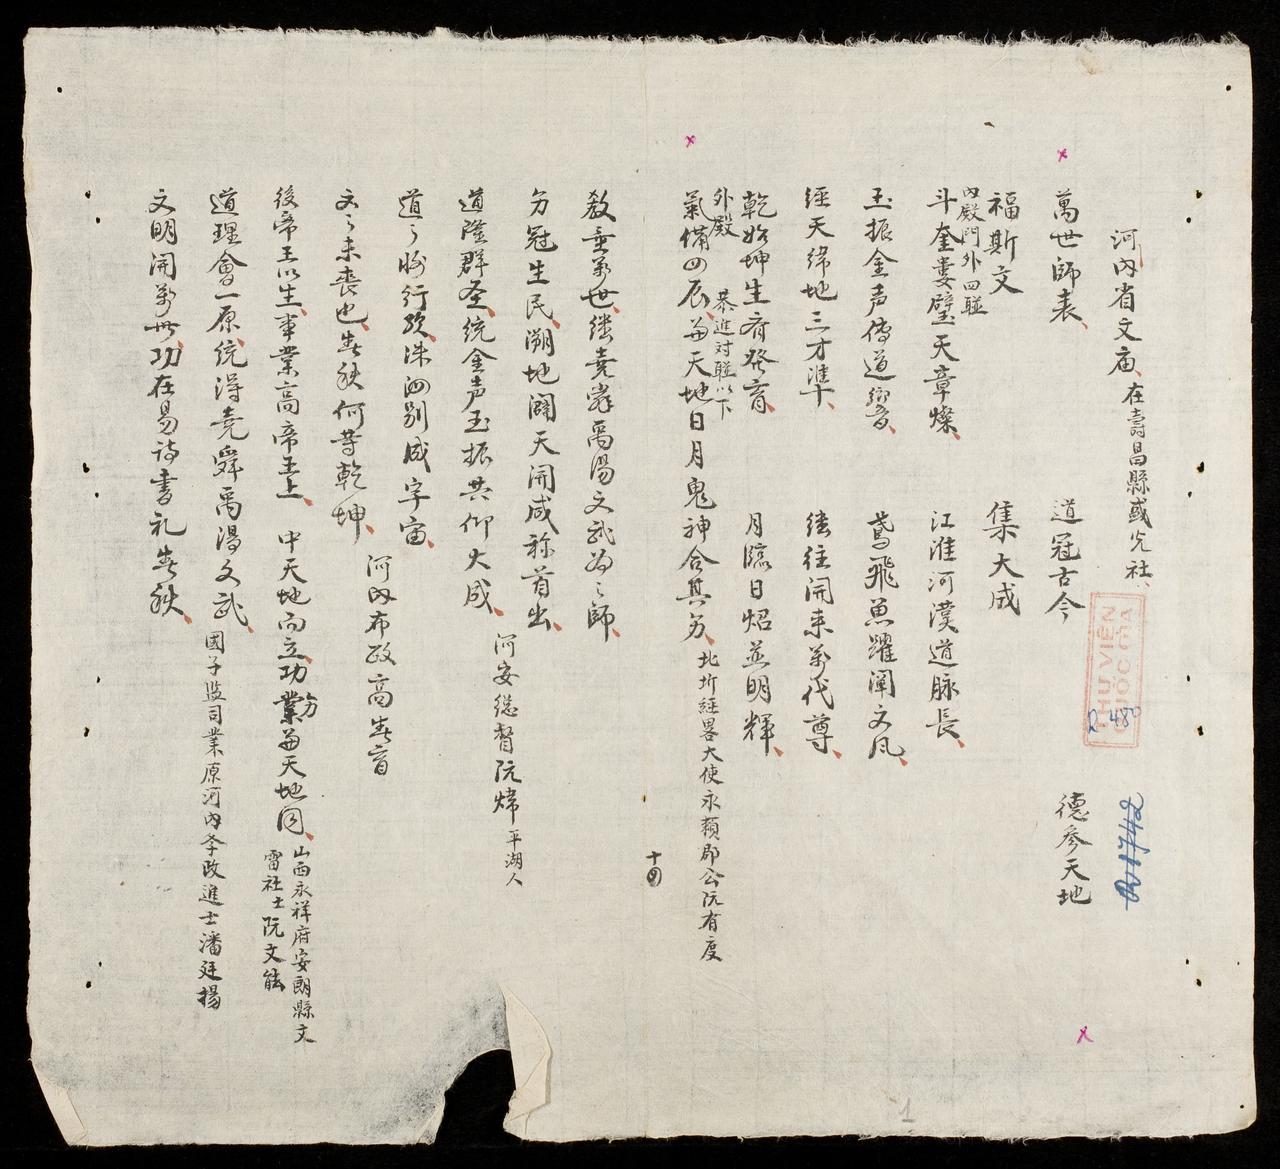 河內省文庙在壽昌縣盛光社
萬世師表 道冠古今 德參天地
福斯文 集大成
內殿門外四聯
斗奎婁璧天章燦 江淮河漢道脉長
玉振金声傳道响 鳶飛魚躍闡文風
經天緯地三才準 継往開来萬代尊
乾始坤生齊發育 月臨日炤並明輝
外殿 恭進对聯以下
氣備四辰为天地日月鬼神合其
北圻經畧大使永賴郡公阮有度
十四
教垂萬世継堯舜禹湯文武為之師
冠生民溯地闢天開咸称首出
河安總督阮煒平湖人
道隆群圣統金声玉振共仰大成
道之將行欤洙泗別成宇宙
文之未喪也春秋何等乾坤
河內布政高春育
後帝王以生事業高帝王上 中天地而立功業並天地同
山西永祥府安朗縣文
雷社士阮文能
道理會一原統得堯舜禹湯文武
國子監司業原河內斈政進士潘廷揚
文明開萬世功在易詩書礼春秋
THƯ VIỆN
QUỐC GIA
R 480
R 1742
1